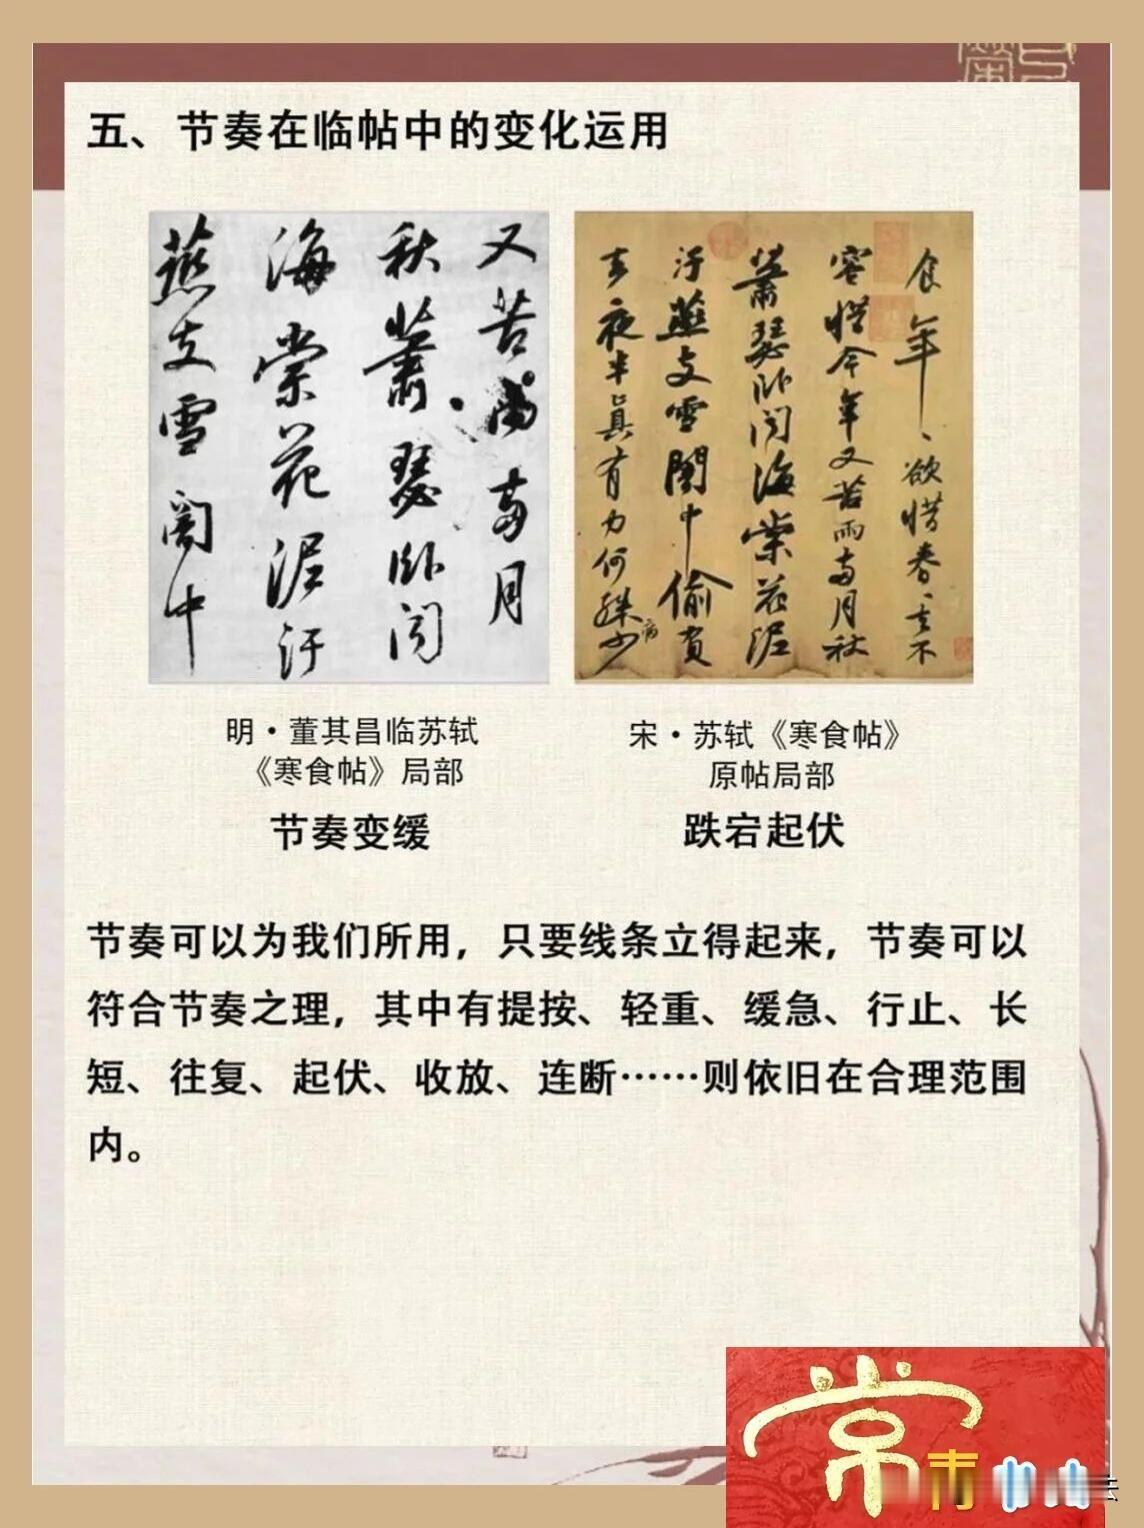 五、节奏在临帖中的变化运用
又苦雨两月
秋萧瑟卧闻
海棠花泥汙
燕支雪闇中
食年年欲惜春春去不
容惜今年又苦雨两月秋
萧瑟卧闻海棠花泥
汙燕支雪闇中偷负
去夜半真有力何殊少
病
明·董其昌临苏轼
《寒食帖》局部
节奏变缓
宋·苏轼《寒食帖》
原帖局部
跌宕起伏
节奏可以为我们所用，只要线条立得起来，节奏可以
符合节奏之理，其中有提按、轻重、缓急、行止、长
短、往复、起伏、收放、连断……则依旧在合理范围
内。
常
青